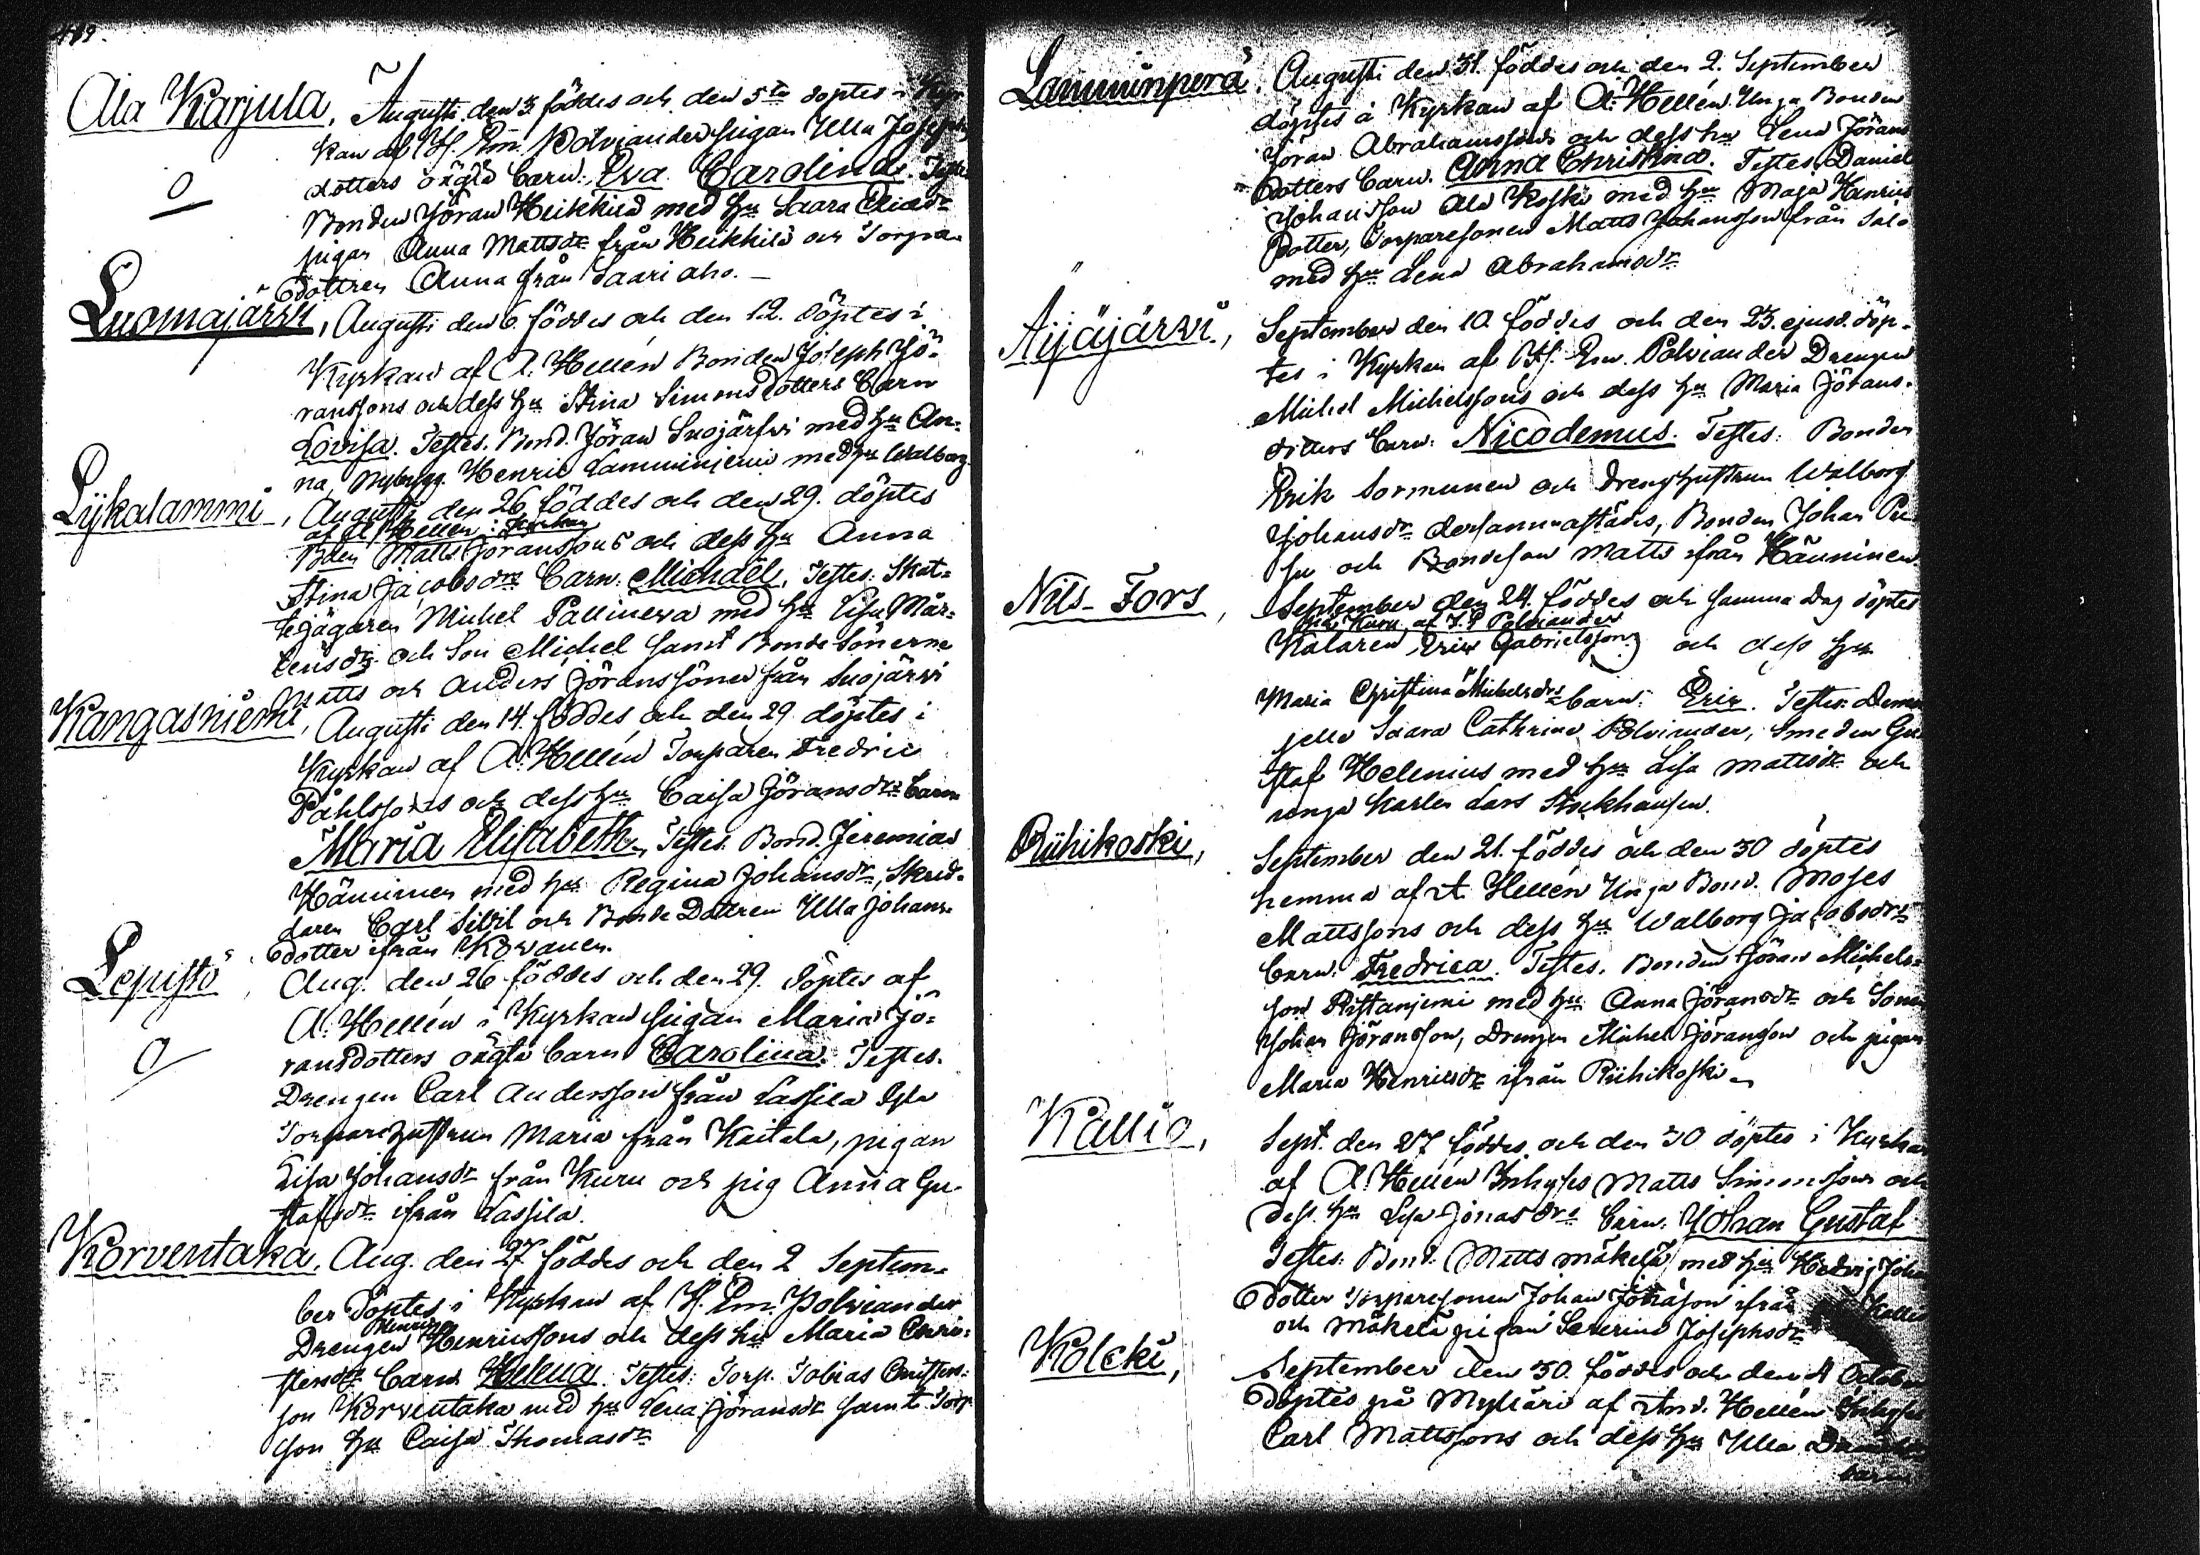 Ala Karjula, Augusti den 3 föddes och den 5te döptes i Kyr-
kan af H. Em. Polviander pigan Ulla Josephs
dotters oägta barn. Eva Carolina. Testes
Bonden Jöran Heikkilä med hu Saara Eliasdr
pigan Anna Mattsdr från Heikkilä och Torpare
dottren Anna från Saariaho. –
Luomajärvi, Augusti den 6. föddes och den 12. döptes i
Kyrkan af A. Hellén Bonden Joseph Jö-
ranssons och dess hu Stina Simonsdotters barn
Lovisa. Testes. Bond. Jöran Suojärfvi med hu An-
na, Nybygg. Henric Lamminperä med hu Walborg.
Lykalammi, Augusti den 26 föddes och den 29. döptes
af A. Hellén i Kyrkan
Bden Matts Jöranssons och dess hu Anna
Stina Jacobsdrs barn: Michaël. Testes: Skat-
tejägaren Michel Pallineva med hu Lisa Mår-
tensdr och Son Michel samt Bonde Sönerne
Matts och Anders Jöranssöner från Suojärvi
Kangasniemi, Augusti den 14. föddes och den 29 döptes i
Kyrkan af A. Hellén Torparen Fredric
Påhlssons och dess hu Caisa Jöransdrs barn
Maria Elisabeth. Testes. Bond. Jeremias
Hänninen med hu Regina Johansdr, Skräd-
daren Carl Silvil och Bonde Dottren Ulla Johans-
dotter ifrån Korvanen.
Lepistö, Aug. den 26 föddes och den 29. döptes af
A. Hellén i Kyrkan pigan Maria Jö-
ransdotters oägta barn Carolina. Testes.
Drengen Carl Andersson från Lassila
Torparehustrun Maria från Kaitala, pigan
Lisa Johansdr från Kuru och pig Anna Gu-
stafsdr ifrån Lassila.
Korventaka, Aug. den 27 föddes och den 2 Septem-
ber döptes i Kyrkan af H. Em. Polviander
Henric
Drengen Henricssons och dess hu Maria Chri-
stensdr barn Helena. Testes: Torp. Tobias Christens-
son Korventaka med hu Lena Jöransdr samt Torp
son hu Caisa Thomasdr
Lamminperä, Augusti den 31. föddes och den 2. September
döptes i Kyrkan af A. Hellén Unga Bonden
Jöran Abrahamssons och dess hu Lena Jörans
Dotters barn. Anna Christina. Testes. Daniel
Johansson Ala Koski med hu Maja Henrics
Dotter, Torparesonen Matts Johansson från Salo
med hu Lena Abrahamsdr
Äijäjärvi, September den 10. föddes och den 23. ejusd. döp-
tes i Kyrkan af H. Em. Polviander Drengen
Michel Michelssons och dess hu Maria Jörans-
dotters barn: Nicodemus. Testes: Bonden
Erik Sormunen och Dreng hustrun Walborg
Johansdr dersammastädes, Bonden Johan
och Bondeson Matts ifrån Hänninen.
Nils-Fors, September den 24. föddes och samma dag döptes
i Kuru af Polviander
Kalaren Eric Gabrielsson och dess hu
Maria Christina Michelsdrs barn: Eric. Testes: Demoi
selle Saara Cathrina Polviander, Smeden Gu
staf Helenius med hu Lisa Mattsdr och
unga Karlen Lars Stockhausen.
Riihikoski, September den 21. föddes och den 30 döptes
hemma af A. Hellén Unga Bond. Moses
Mattssons och dess hu Walborg Jacobsdrs
barn. Fredrica. Testes. Bonden Jöran Michels-
son Ristaniemi med hu Anna Jöransdr och Sonen
Johan Jöransson, Drengen Michel Jöransson och pigan
Maria Henricsdr ifrån Riihikoski.
Kallio, Sept. den 27 föddes och den 30 döptes i Kyrkan
af A. Hellén Inhyses Matts Simonssons och
dess hu Lisa Jonasdrs barn. Johan Gustaf
Testes: Bond. Matts Mäkelä med hu Hedvig Joha
dotter Torparesonen Johan ifrån
och Mäkelä pigan Severina Josephsdr
Kolcki, September den 30. föddes och den October
döptes på Mylläri af And. Hellén Inhyses
Carl Mattssons och dess hu Ulla
barn